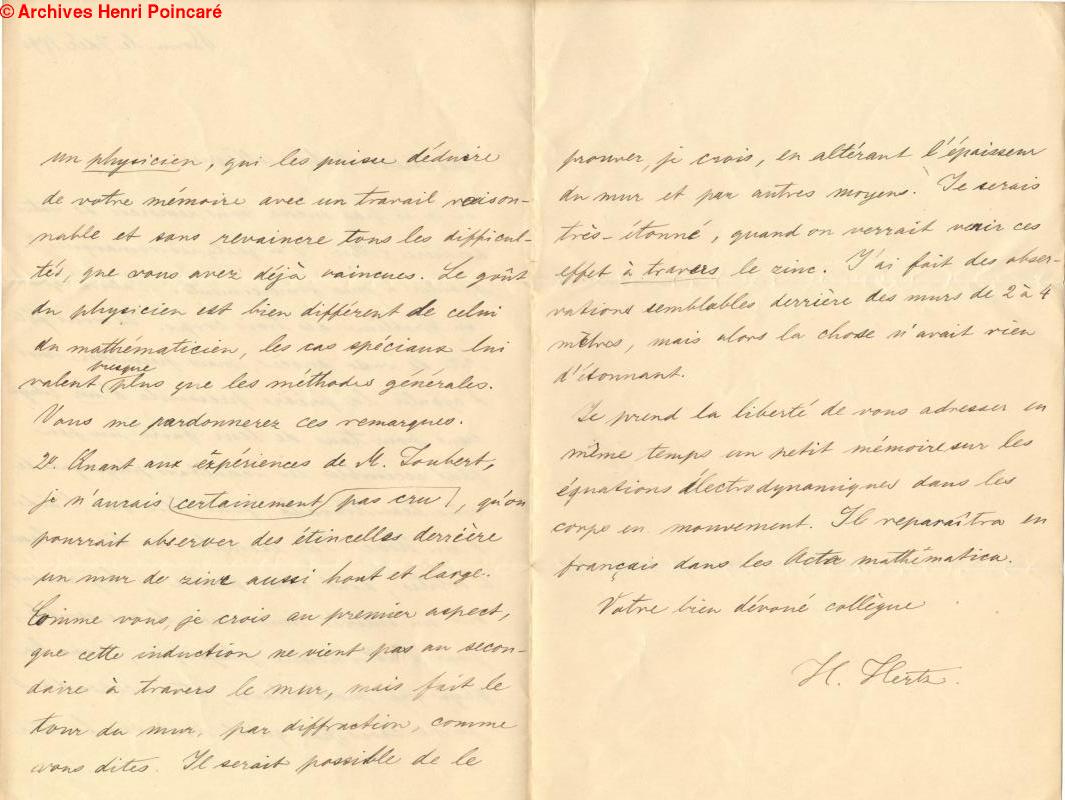 © Archives Henri Poincaré
un physicien, qui les puisse déduire
de votre mémoire avec un travail raison-
nable et sans revaincre tous les difficul-
tés, que vous avez déjà vaincues. Le goût
du physicien est bien différent de celui
du mathématicien, les cas spéciaux lui
presque
valent plus que les méthodes générales.
Vous me pardonnerez ces remarques.
2º. Quant aux expériences de M. Joubert,
je n'aurais certainement pas cru, qu'on
pourrait observer des étincelles derrière
un mur de zinc aussi haut et large.
Comme vous, je crois au premier aspect,
que cette induction ne vient pas au secon-
daire à travers le mur, mais fait le
tour du mur, par diffraction, comme
vous dites. Il serait possible de le
prouver, je crois, en altérant l'épaisseur
du mur et par autres moyens. Je serais
très-étonné, quand on verrait venir ces
effet à travers le zinc. J'ai fait des obser-
vations semblables derrière des murs de 2 à 4
mètres, mais alors la chose n'avait rien
d'étonnant.
Je prend la liberté de vous adresser en
même temps un petit mémoire sur les
équations électrodynamiques dans les
corps en mouvement. Il reparaîtra en
français dans les Acta mathématica.
Votre bien dévoué collègue
H. Hertz.